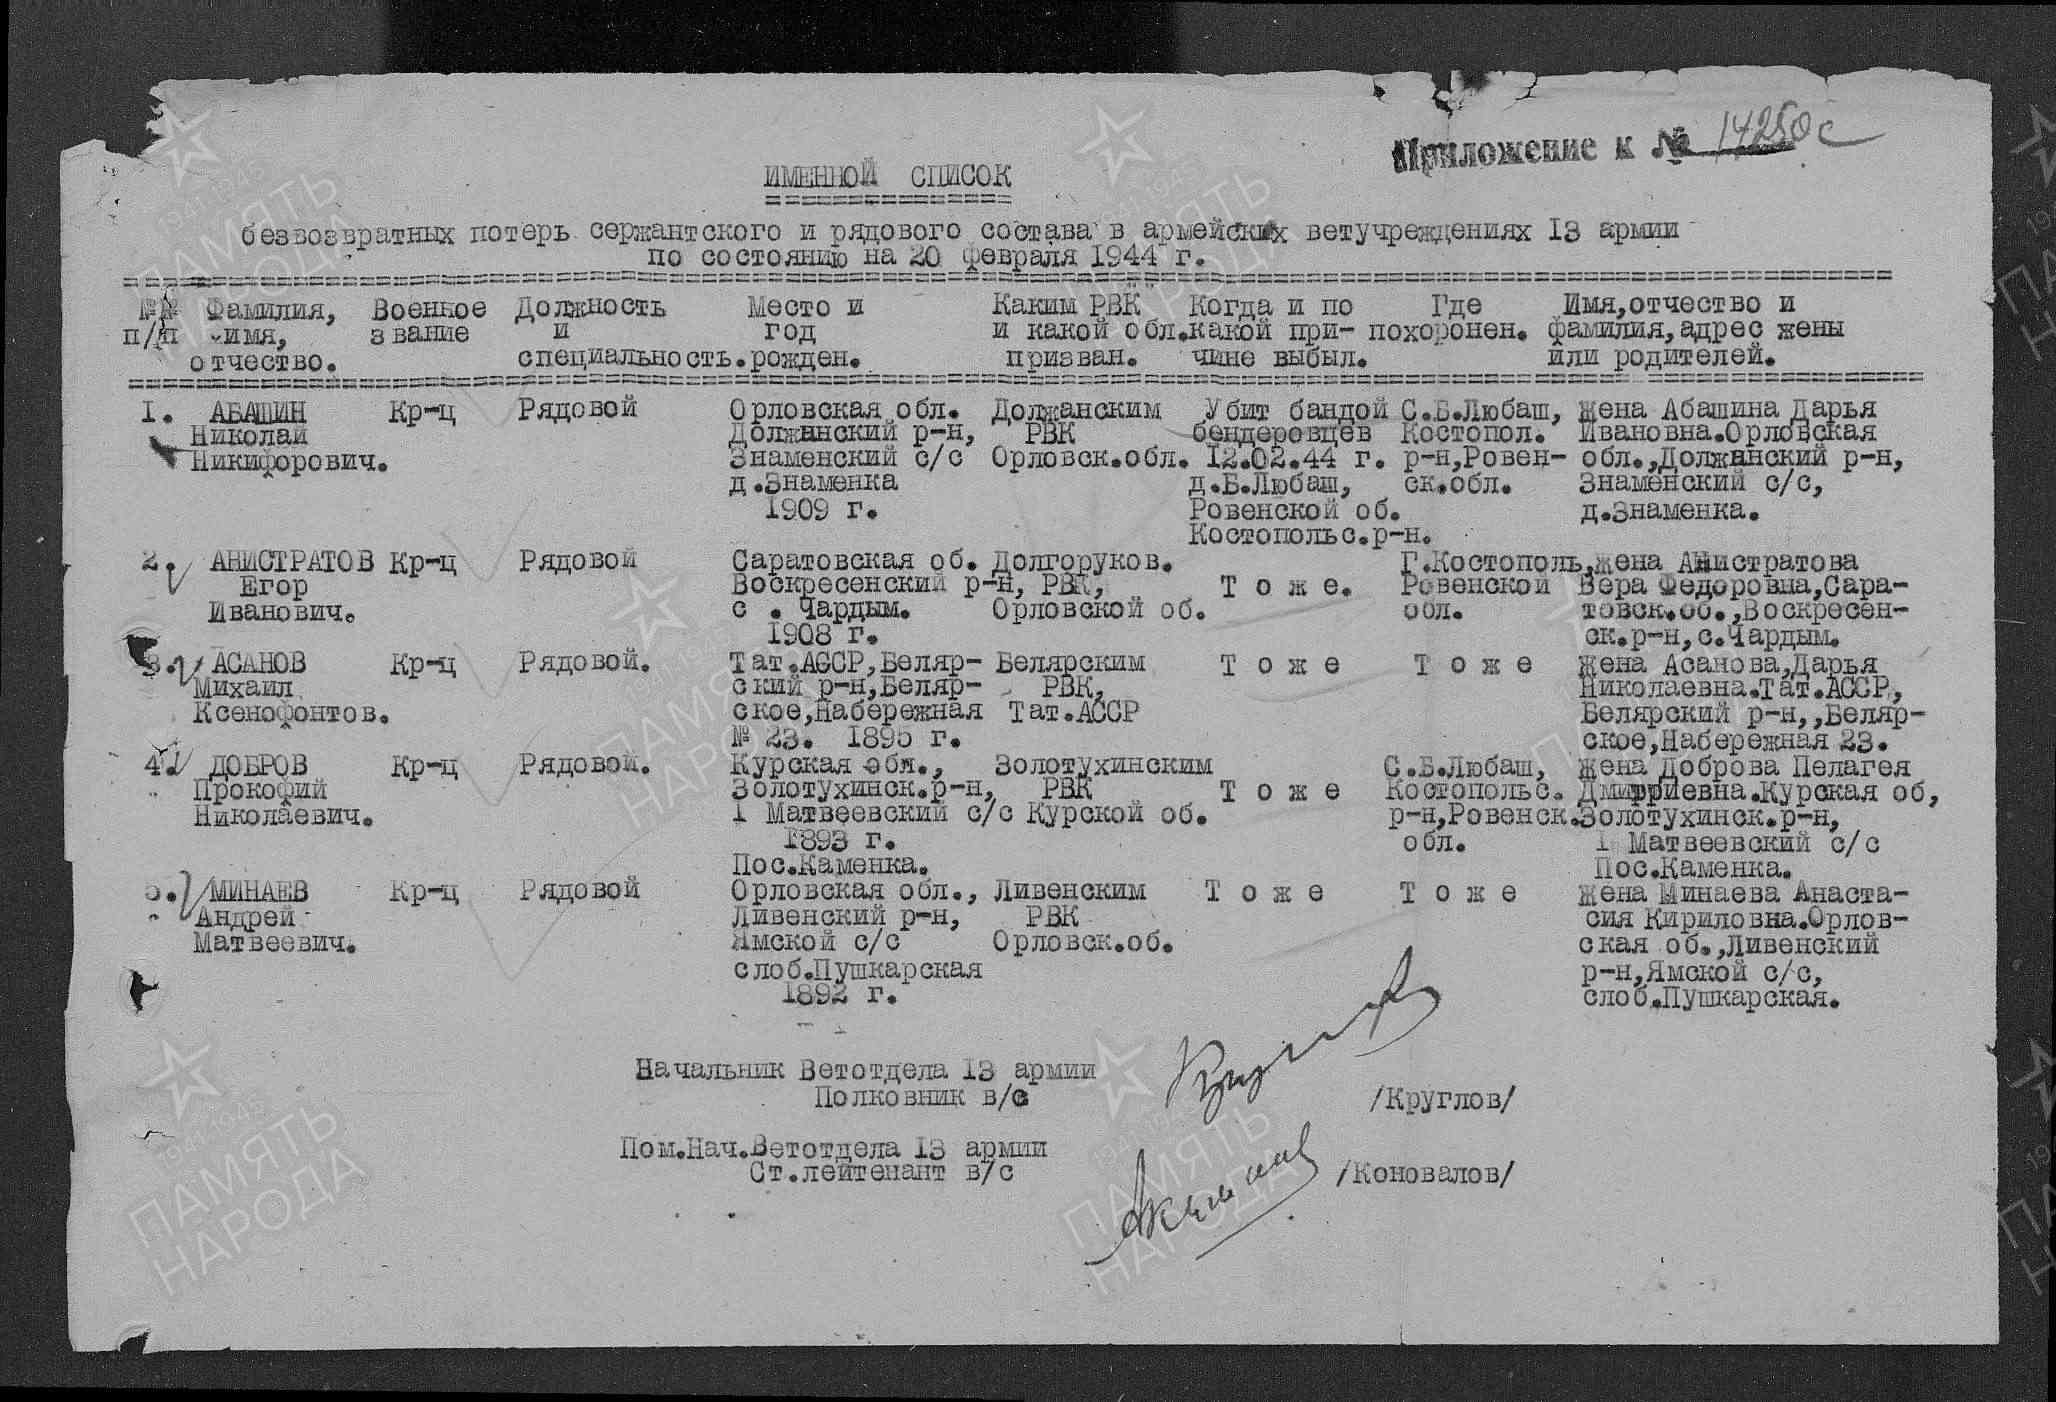 Приложение к № 14250с
ИМЕННОЙ СПИСОК
безвозвратных потерь сержантского и рядового состава в армейских ветучреждениях 13 армии
по состоянию на 20 февраля 1944 г.
№№ Фамилия, Военное Должность Место и Каким РВК Когда и по Где Имя,отчество и
п/п имя, звание и год и какой обл. какой при- похоронен. фамилия,адрес жены
отчество. специальность. рожден. призван. чине выбыл. или родителей.
1. АБАШИН Кр-ц Рядовой Орловская обл. Должанским Убит бандой С.Б.Любаш, Жена Абашина Дарья
Николай Должанский р-н, РВК бендеровцев Костопол. Ивановна.Орловская
Никифорович. Знаменский с/с Орловск.обл. 12.02.44 г. р-н,Ровен- обл.,Должанский р-н,
д.Знаменка д.Б.Любаш, ск.обл. Знаменский с/с,
1909 г. Ровенской об. д.Знаменка.
Костопольс.р-н.
2. АНИСТРАТОВ Кр-ц Рядовой Саратовская об. Долгоруков. Г.Костополь, жена Анистратова
Егор Воскресенский р-н, РВК, Т о ж е. Ровенской Вера Федоровна,Сара-
Иванович. с . Чардым. Орловской об. обл. товск.об.,Воскресен-
1908 г. ск.р-н,с.Чардым.
3. АСАНОВ Кр-ц Рядовой. Тат.АССР,Беляр- Белярским Т о ж е Т о ж е Жена Асанова,Дарья
Михаил ский р-н,Беляр- РВК, Николаевна.Тат.АССР,
Ксенофонтов. ское,Набережная Тат.АССР Белярский р-н,,Беляр-
№ 23. 1895 г. ское,Набережная 23.
4. ДОБРОВ Кр-ц Рядовой. Курская обл., Золотухинским С.Б.Любаш, Жена Доброва Пелагея
Прокофий Золотухинск.р-н, РВК Т о ж е Костопольс. Дмитриевна.Курская об,
Николаевич. 1 Матвеевский с/с Курской об. р-н,Ровенск. Золотухинск.р-н,
1893 г. обл. 1 Матвеевский с/с
Пос.Каменка. Пос.Каменка.
5. МИНАЕВ Кр-ц Рядовой Орловская обл., Ливенским Т о ж е Т о ж е Жена Минаева Анаста-
Андрей Ливенский р-н, РВК сия Кириловна.Орлов-
Матвеевич. Ямской с/с Орловск.об. ская об.,Ливенский
слоб.Пушкарская р-н,Ямской с/с,
1892 г. слоб.Пушкарская.
Начальник Ветотдела 13 армии
Полковник в/с /Круглов/
Пом.Нач.Ветотдела 13 армии
Ст.лейтенант в/с /Коновалов/
ПАМЯТЬ
НАРОДА
1941-1945